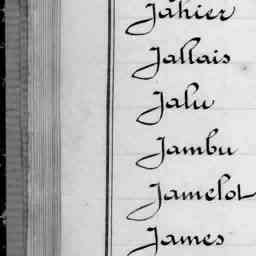 Jahier
Jallais
Jalu
Jambu
Jamelot
James